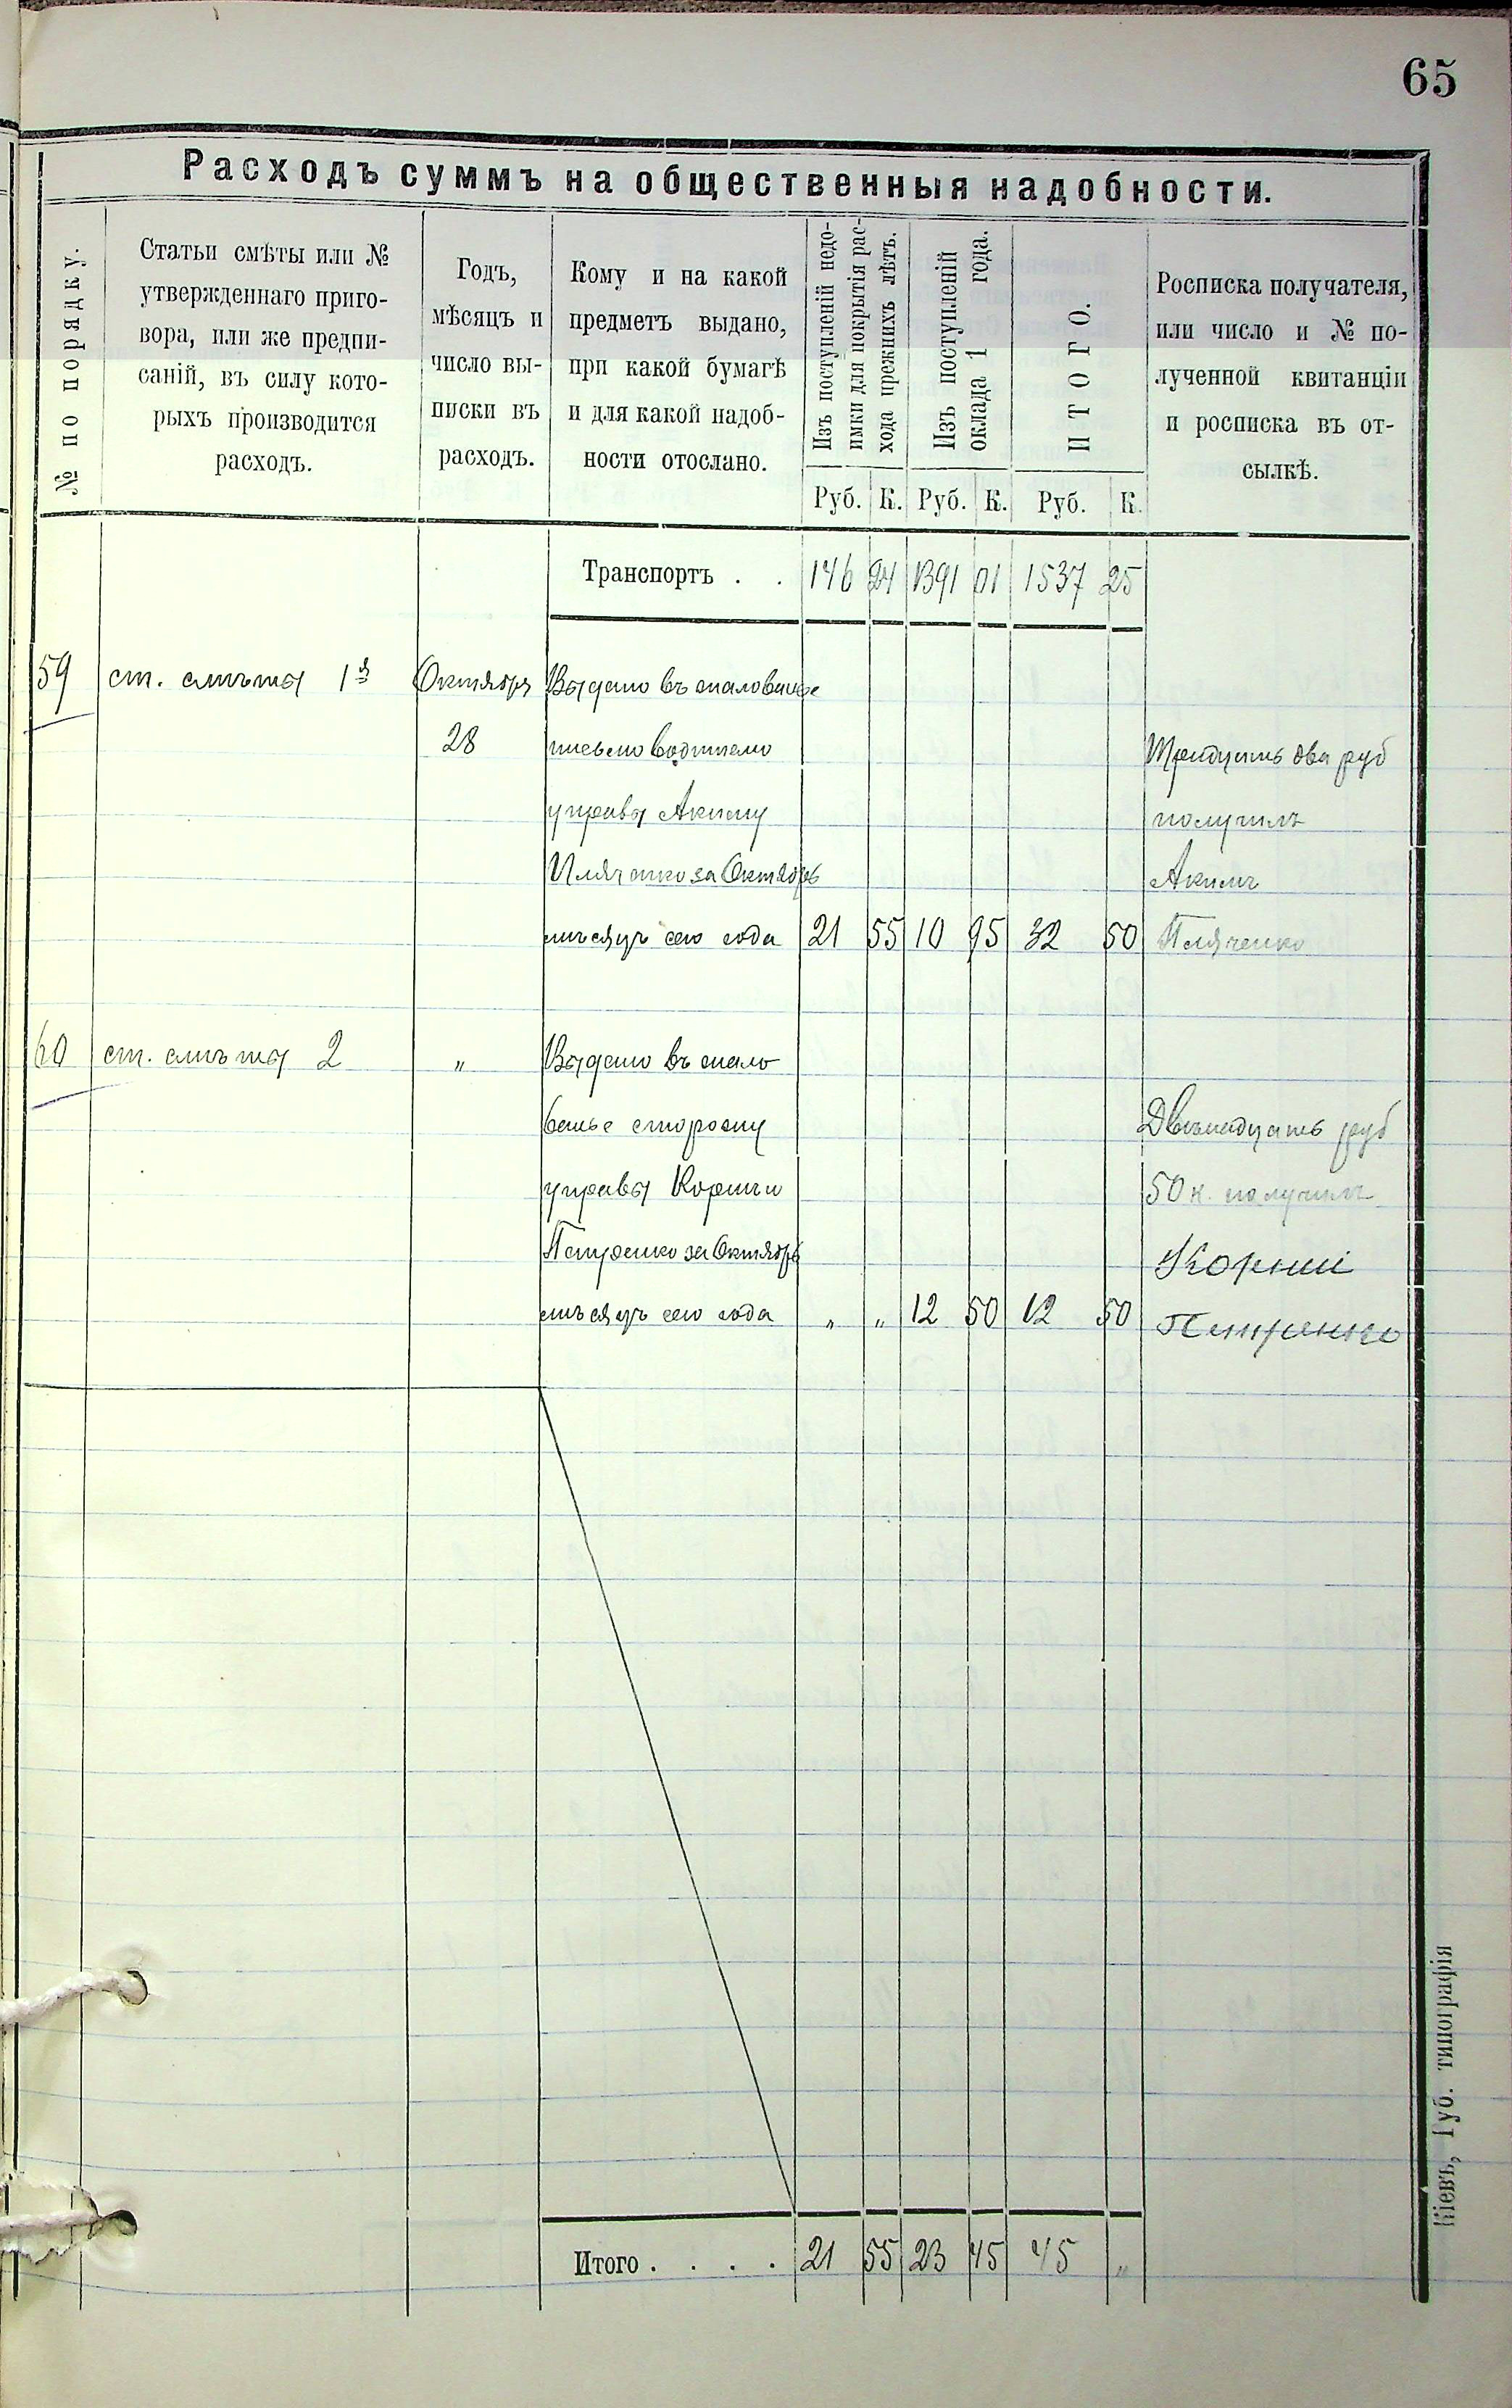 65
Расходъ суммъ на общественныя надобности.
№ по порядку.
Статьи смѣты или №
утвержденнаго приго-
вора, или же предпи-
саній, въ силу кото-
рыхъ производится
расходъ.
Годъ,
мѣсяцъ и
число вы-
писки въ
расходъ.
Кому и на какой
предметъ выдано,
при какой бумагѣ
и для какой надоб-
ности отослано.
Изъ поступленій недо-
имки для покрытія рас-
хода прежнихъ лѣтъ.
Изъ поступленій
оклада 1 года.
ИТОГО.
Росписка получателя,
или число и № по-
лученной квитанціи
и росписка въ от-
сылкѣ.
Руб. К. Руб. К. Руб. К.
Транспортъ . . 146 24 1391 01 1537 25
59 ст. смѣты 1я Октября Выдано въ жалованье
28 письмоводителю Тридцать два руб
управы Акиму получилъ
Пляченко за Октябрь Акимъ
мѣсяцъ сего года 21 55 10 95 32 50 Пляченко
60 ст. смѣты 2 „ Выдано въ жало
ванье сторожу Двѣнадцать руб
управы Корнію 50 к. получилъ
Петренко за Октябрь Корній
мѣсяцъ сего года „ „ 12 50 12 50 Петренко
Итого . . . . 21 55 23 45 45 „
Кіевъ, Губ. типографія